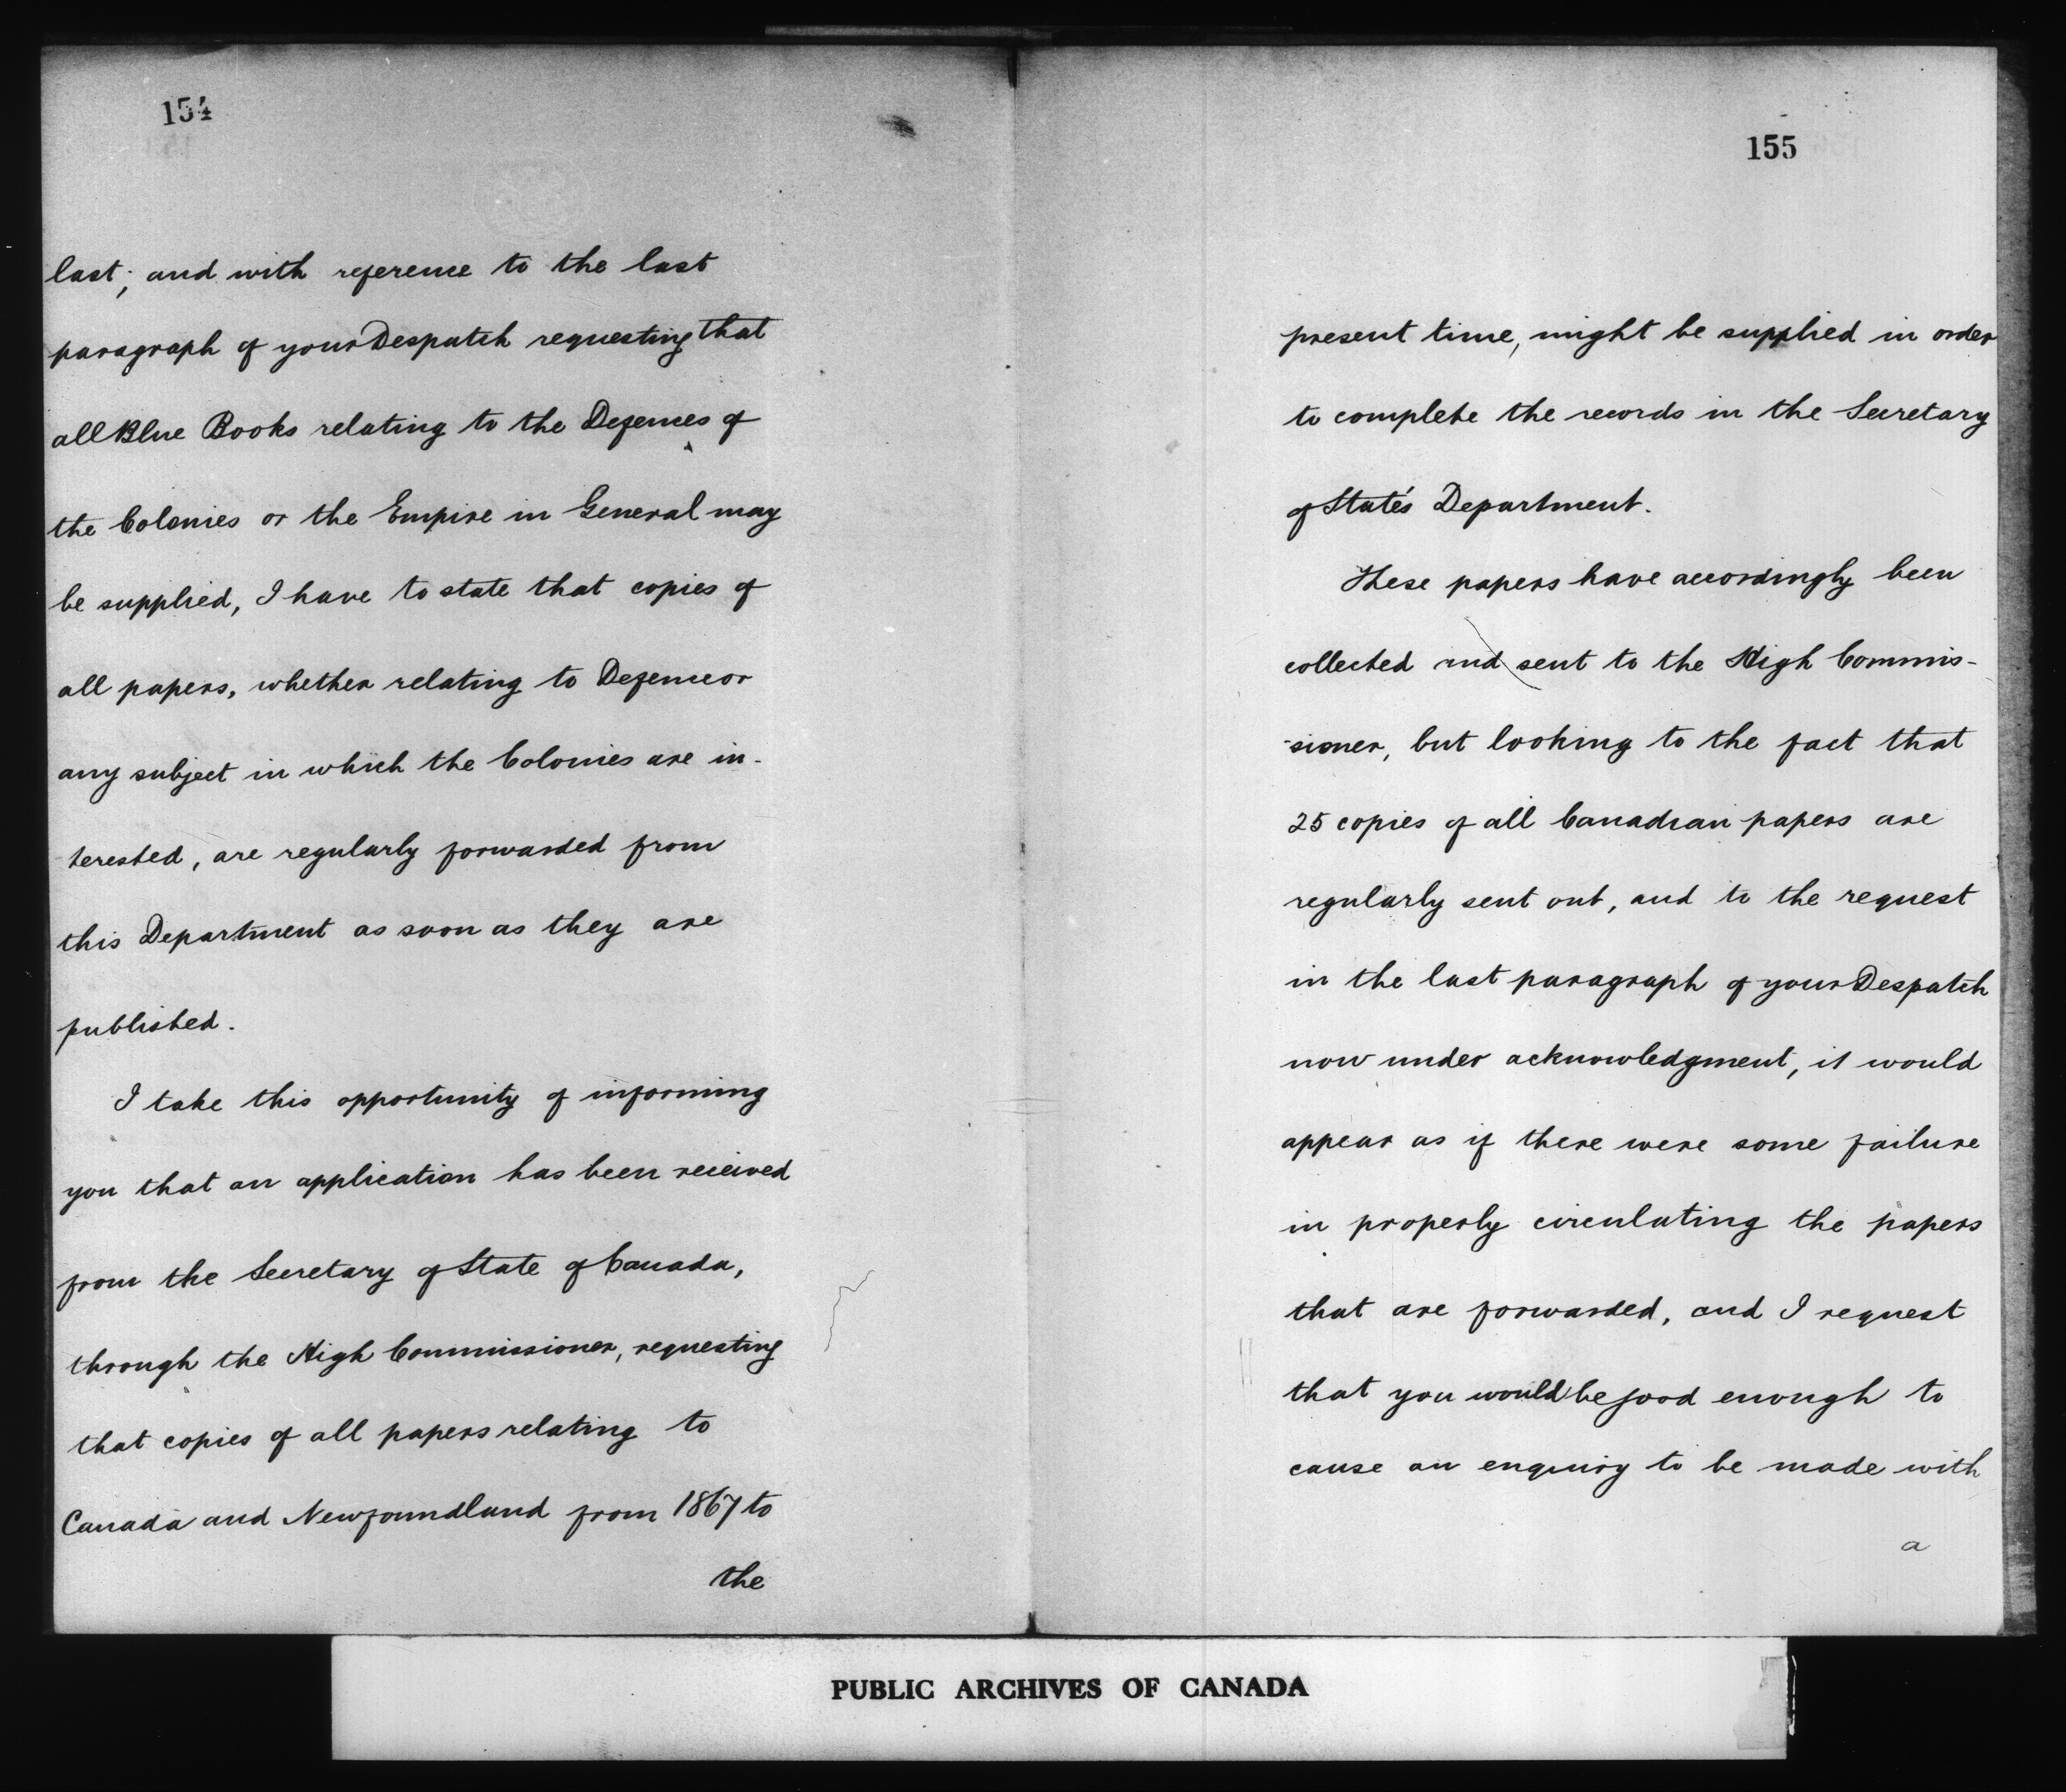 154
last; and with reference to the last
paragraph of your Despatch requesting that
all Blue Books relating to the Defences of
the Colonies or the Empire in General may
be supplied, I have to state that copies of
all papers, whether relating to Defence or
any subject in which the Colonies are in-
terested, are regularly forwarded from
this Department as soon as they are
published.
I take this opportunity of informing
you that an application has been received
from the Secretary of State of Canada,
through the High Commissioner, requesting
that copies of all papers relating to
Canada and Newfoundland from 1867 to
the
155
present time, might be supplied in order
to complete the records in the Secretary
of State's Department.
These papers have accordingly been
collected and sent to the High Commis-
sioner, but looking to the fact that
25 copies of all Canadian papers are
regularly sent out, and to the request
in the last paragraph of your Despatch
now under acknowledgment, it would
appear as if there were some failure
in properly circulating the papers
that are forwarded, and I request
that you would be good enough to
cause an enquiry to be made with
a
PUBLIC ARCHIVES OF CANADA